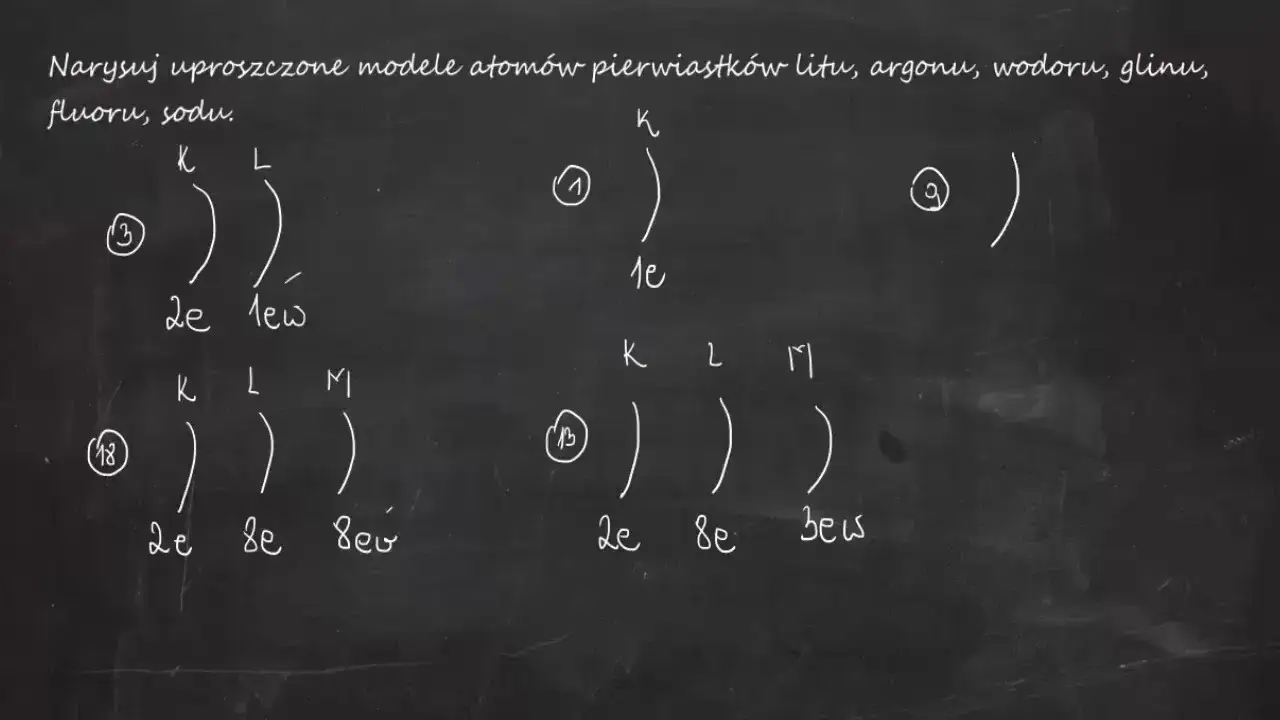 Narysuj uproszczone modele atomów pierwiastków litu, argonu, wodoru, glinu,
fluoru, sodu.
K L
3
2e 1ew
K
1
1e
9
K L M
18
2e 8e 8ew
K L M
13
2e 8e 3ew